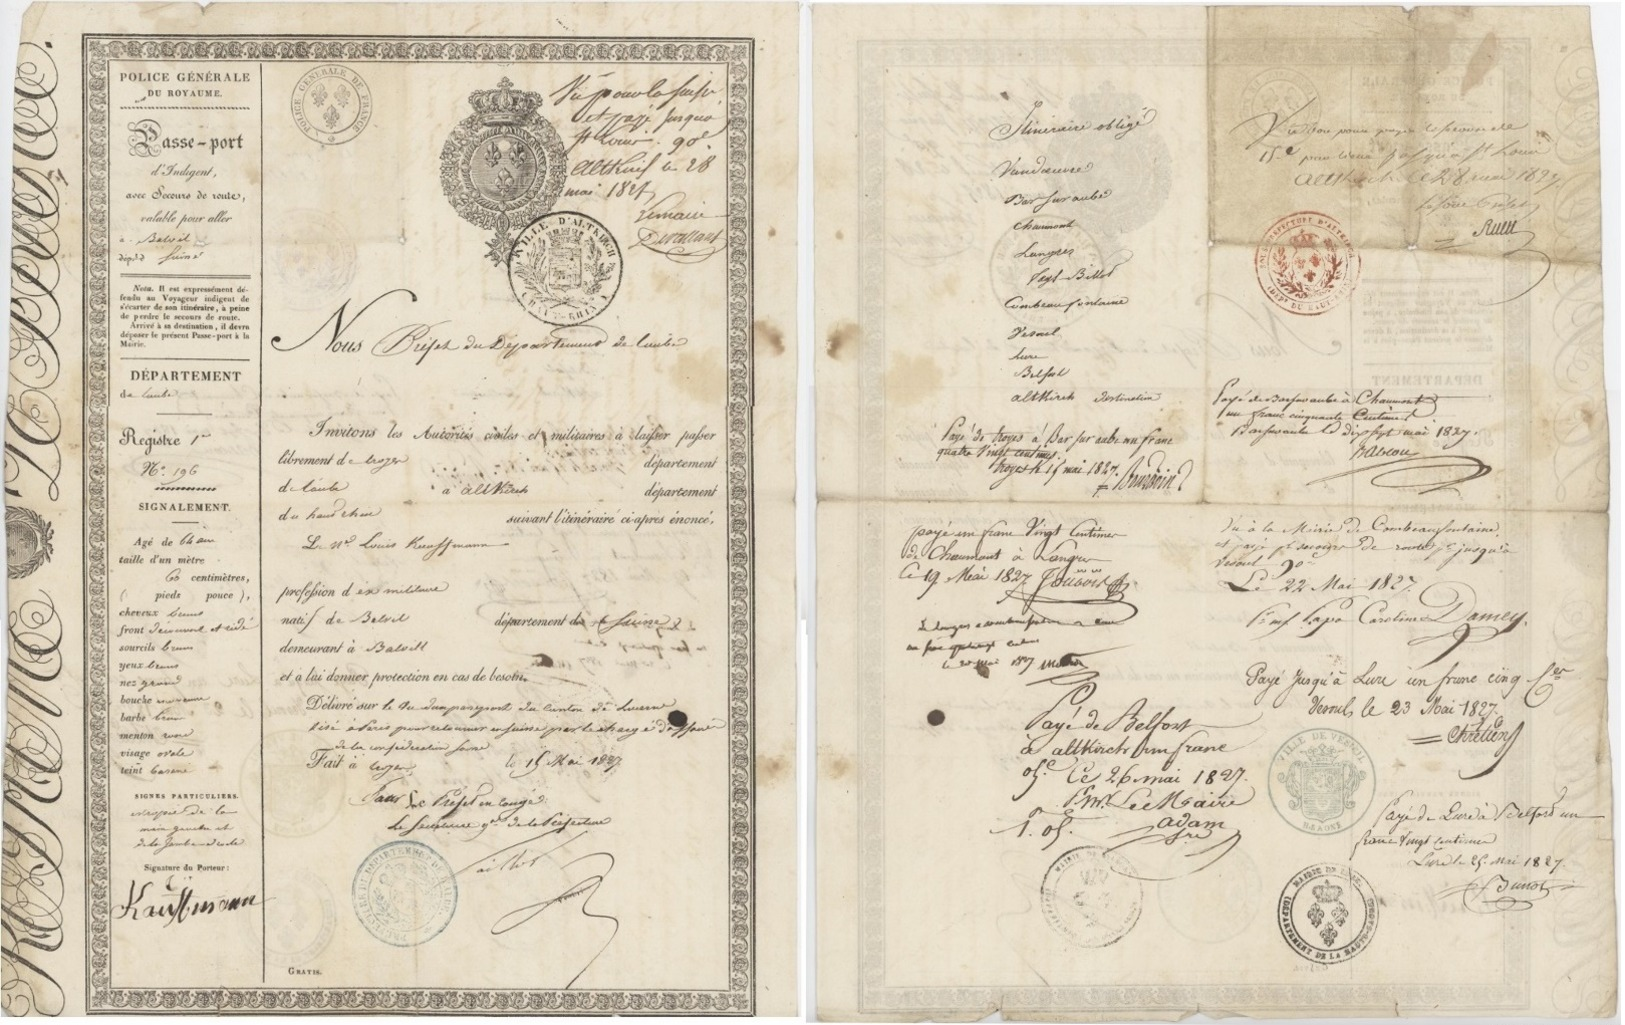 POLICE GÉNÉRALE
DU ROYAUME.
Passe-port
d'Indigent,
avec Secours de route,
valable pour aller
a Belvil
dép.t d Suisse
Nota. Il est expressément dé-
fendu au Voyageur indigent de
s'écarter de son itinéraire, à peine
de perdre le secours de route.
Arrivé à sa destination, il devra
déposer le présent Passe-port à la
Mairie.
DÉPARTEMENT
de l'aube
Registre 1er
N.º 196
SIGNALEMENT.
Agé de 64 ans
taille d'un mètre
60 centimètres,
( pieds pouce ),
cheveux bruns
front découvert et ridé
sourcils bruns
yeux bruns
nez grand
bouche moyenne
barbe brun
menton rond
visage ovale
teint basané
SIGNES PARTICULIERS.
estropié de la
main gauche et
de la jambe droite
Signature du Porteur :
Kauffmann
POLICE GÉNÉRALE DE FRANCE
Vu pour la suisse
et payé jusqu'à
St Louis 90c
Altkirch le 28
mai 1827
Le maire
VILLE D'ALTKIRCH
(HAUT-RHIN)
Nous Préfet du Département de l'aube
Invitons les Autorités civiles et militaires à laisser passer
librement de troyes département
de l'aube à altkirch département
du haut rhin suivant l'itinéraire ci-après énoncé,
Le né Louis Kauffmann
profession d'ex militaire
natif de Belvil département de Suisse
demeurant à Belvill
et à lui donner protection en cas de besoin.
Délivré sur le vu d'un passeport du canton de Lucerne
visé à Paris pour retourner en suisse par le chargé d'affaires
de la confédération suisse
Fait à troyes le 15 Mai 1827
Pour le Préfet en congé
Le Secrétaire gal de la Préfecture
GRATIS.
Itinéraire obligé
Vandœuvre
Bar sur aube
Chaumont
Langres
fayl-Billot
Combeaufontaine
Vesoul
Lure
Belfort
altkirch destination
Payé de troyes à Bar sur aube un franc
quatre vingt centimes.
troyes le 15 mai 1827.
Bourgoin
payé un franc Vingt Centimes
de Chaumont à Langres
Ce 19 Mai 1827
le 20 mai 1827
Payé de Belfort
à altkirch un franc
05c Ce 26 mai 1827.
Pr Mr Le Maire
adam
1. 05.
altkirch le 28 mai 1827.
Ruell
SOUS-PRÉFECTURE D'ALTKIRCH
(DÉPT DU HAUT-RHIN)
Payé de Barsuraube à Chaumont
un franc cinquante Centimes
Barsuraube le dix sept mai 1827.
Vu à la Mairie de Combeaufontaine,
et payé pr secours de route jusqu'à
Vesoul 90c
Le 22 Mai 1827.
Damey
Payé Jusqu'à Lure un franc cinq Ces
Vesoul, le 23 Mai 1827.
Chrétien
VILLE DE VESOUL
Hte SAONE
Payé de Lure à Belford un
franc Vingt centimes
Lure le 25 Mai 1827.
MAIRIE DE LURE
(DÉPARTEMENT DE LA HAUTE-SAONE)